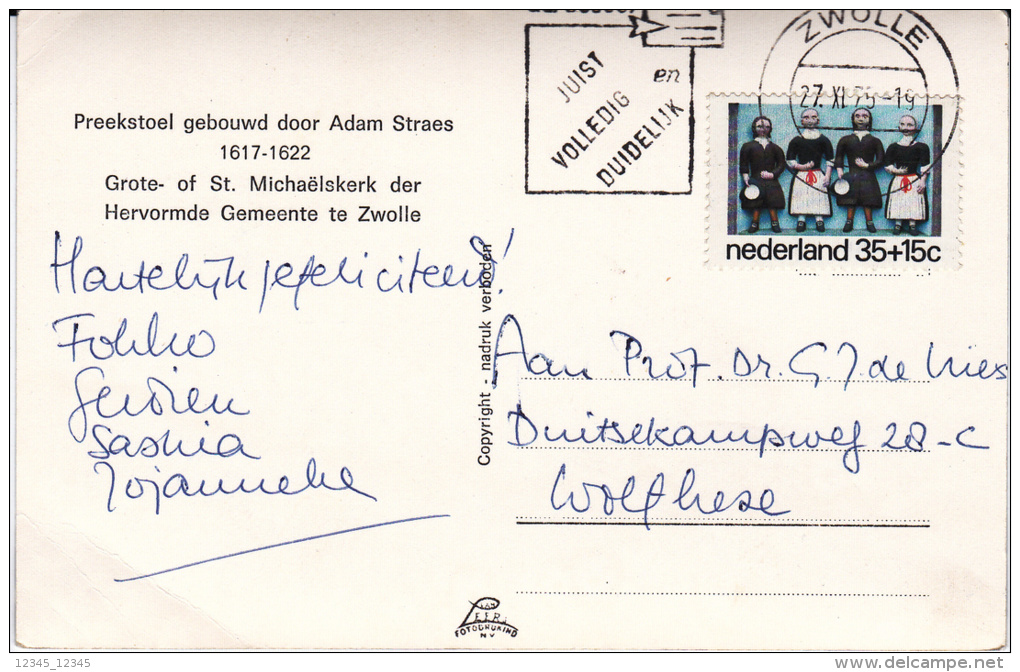 Preekstoel gebouwd door Adam Straes
1617-1622
Grote- of St. Michaëlskerk der
Hervormde Gemeente te Zwolle
Hartelijk gefeliciteerd!
Fokko
Gerdien
Saskia
Jojanneke
JUIST
en
VOLLEDIG
DUIDELIJK
ZWOLLE
27.XI 75-19
nederland 35+15c
Copyright - nadruk verboden
Aan Prof. Dr. G. J. de Vries
Duitsekampweg 28-c
Wolfheze
FOTODRUKIND
N.V
12345_12345
delcampe.net